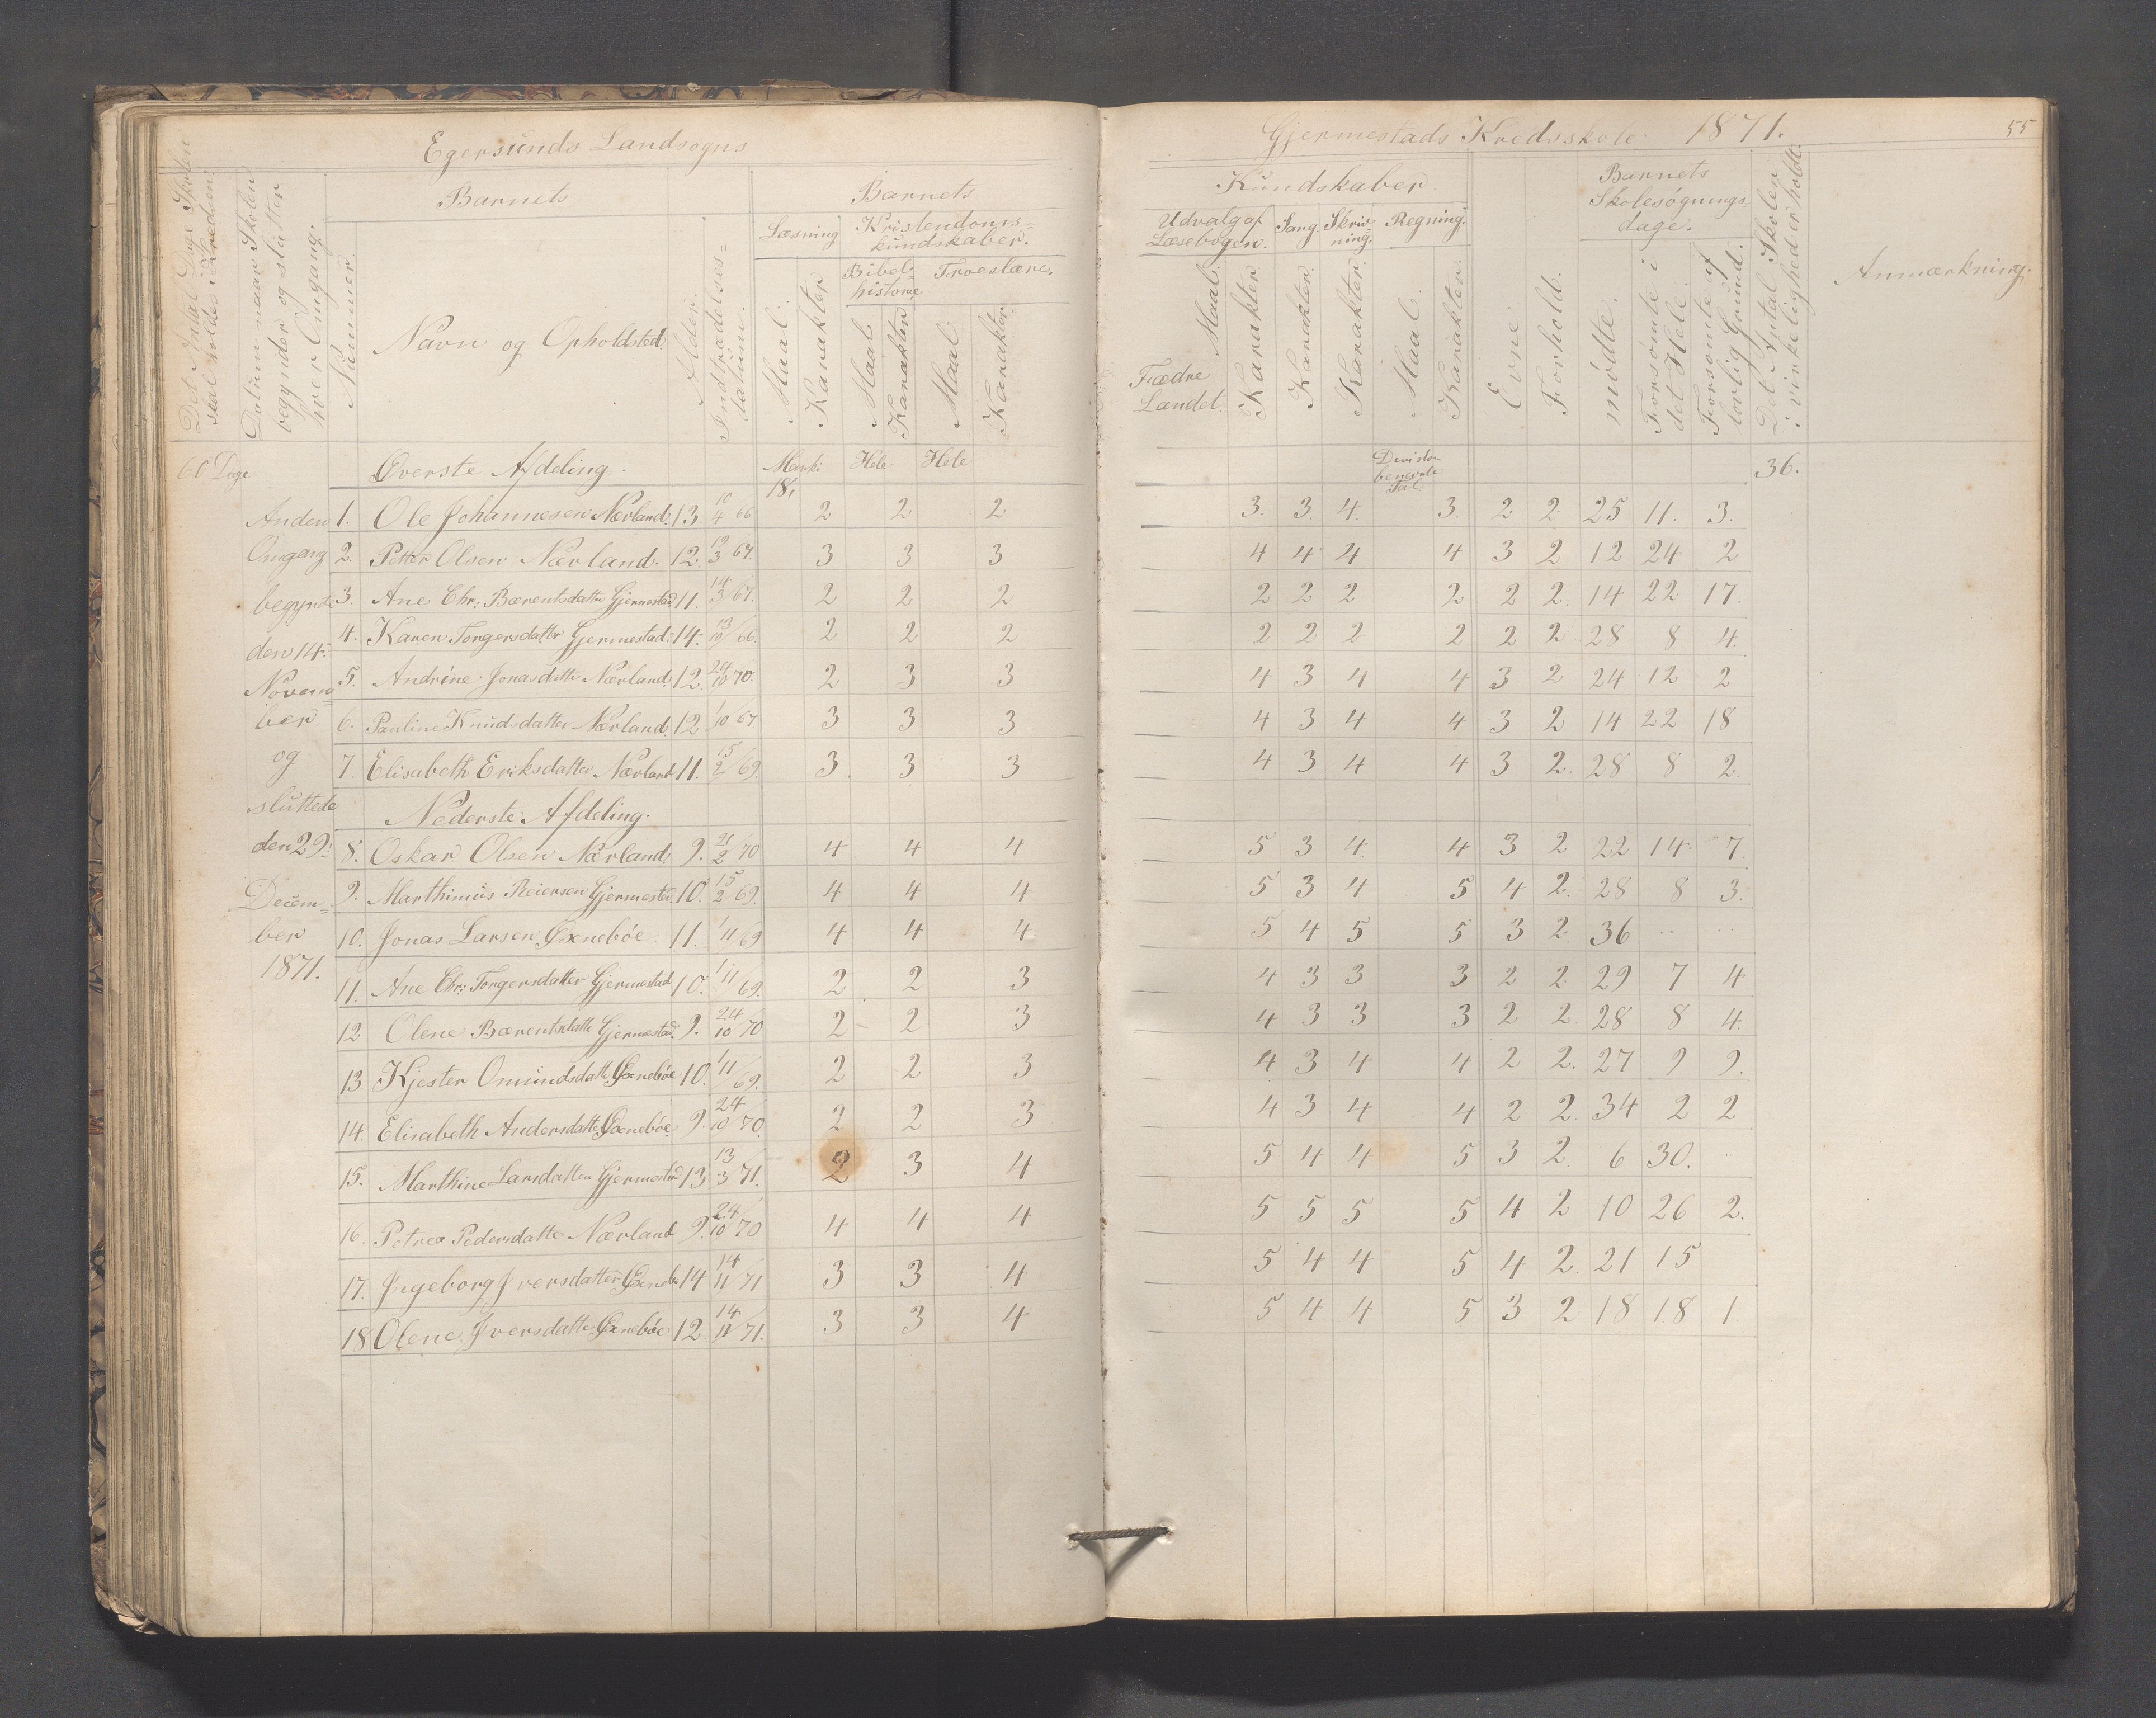 Egersunds Landsogns
Gjermestads Kredsskole 1871.
55
Det Antal Dage Skolen skal holdes i Kredsen.
Datum naar Skolen begynder og slutter hver Omgang.
Nummer
Barnets
Navn og Opholdsted.
Alder.
Indtrædelses-datum.
Barnets
Læsning
Maal.
Karakter
Kristendoms-kundskaber.
Bibel-historie
Maal
Karakter
Troeslære.
Maal
Karakter.
Kundskaber.
Udvalg af Læsebogen.
Maal.
Karakter.
Sang.
Karakter.
Skriv-ning.
Karakter.
Regning.
Maal.
Karakter.
Evne.
Forhold.
Barnets Skolesøgnings-dage.
mødte.
Forsømte i det Hele.
Forsømte af lovlig Grund.
Det Antal Skolen i virkelighed er holdt.
Anmærkning.
Fædre Landet.
60 Dage
Øverste Afdeling.
Hele Hele
36.
18,
Anden Omgang begyndte den 14. November og sluttede den 29. December 1871.
1. Ole Johannesen Nærland. 13. 10/4 66 2 2 2 3. 3. 4. 3. 2 2 25 11. 3.
2. Petter Olsen Nærland. 12. 19/3 67. 3 3 3 4 4 4 4 3 2 12 24 2
3. Ane Chr: Bærentsdatter Gjermestad 11. 14/3 67. 2 2 2 2 2 2 2 2 2. 14 22 17.
4. Karen Torgersdatter Gjermestad. 14. 13/10 66. 2 2 2 2 2 2 2 2 2. 28 8 4.
5. Andrine Jonasdatter Nærland. 12. 24/10 70. 2 3 3 4 3 4 4 3 2 24 12 2
6. Pauline Knudsdatter Nærland. 12 1/10 67. 3 3 3 4 3 4 4 3 2 14 22 18
7. Elisabeth Eriksdatter Nærland 11. 15/2 69. 3 3 3 4 3 4 4 3 2. 28 8 2.
Nederste Afdeling.
8. Oskar Olsen Nærland. 9. 21/2 70 4 4 4 5 3 4 4 3 2 22 14. 7.
9. Marthinius Reiersen Gjermestad. 10. 15/2 69. 4 4 4 5 3 4 5 4 2. 28 8 3.
10. Jonas Larsen Øxnebøe. 11. 1/11 69 4 4 4 5 4 5 5 3 2. 36 .. ..
11. Ane Chr: Torgersdatter Gjermestad 10. 1/11 69. 2 2 3 4 3 3 3 2 2 29 7 4
12 Olene Bærentsdatter Gjermestad. 9. 24/10 70 2 2 3 4 3 3 3 2 2. 28 8 4.
13. Kjester Omundsdatter Øxnebøe 10. 1/11 69. 2 2 3 4 3 4 4 2 2. 27 9 9.
14. Elisabeth Andersdatter Øxnebøe 9. 24/10 70. 2 2 3 4 3 4 4 2 2. 34 2 2
15. Marthine Larsdatter Gjermestad 13 13/3 71. 2 3 4 5 4 4 5 3 2. 6 30.
16. Petrea Pedersdatter Nærland 9. 24/10 70 4 4 4 5 5 5 5 4 2 10 26 2.
17. Ingeborg Iversdatter Øxnebø 14 14/11 71 3 3 4 5 4 4 5 4 2. 21 15
18 Olene Iversdatter Øxnebøe 12. 14/11 71. 3 3 4 5 4 4 5 3 2 18 18 1.